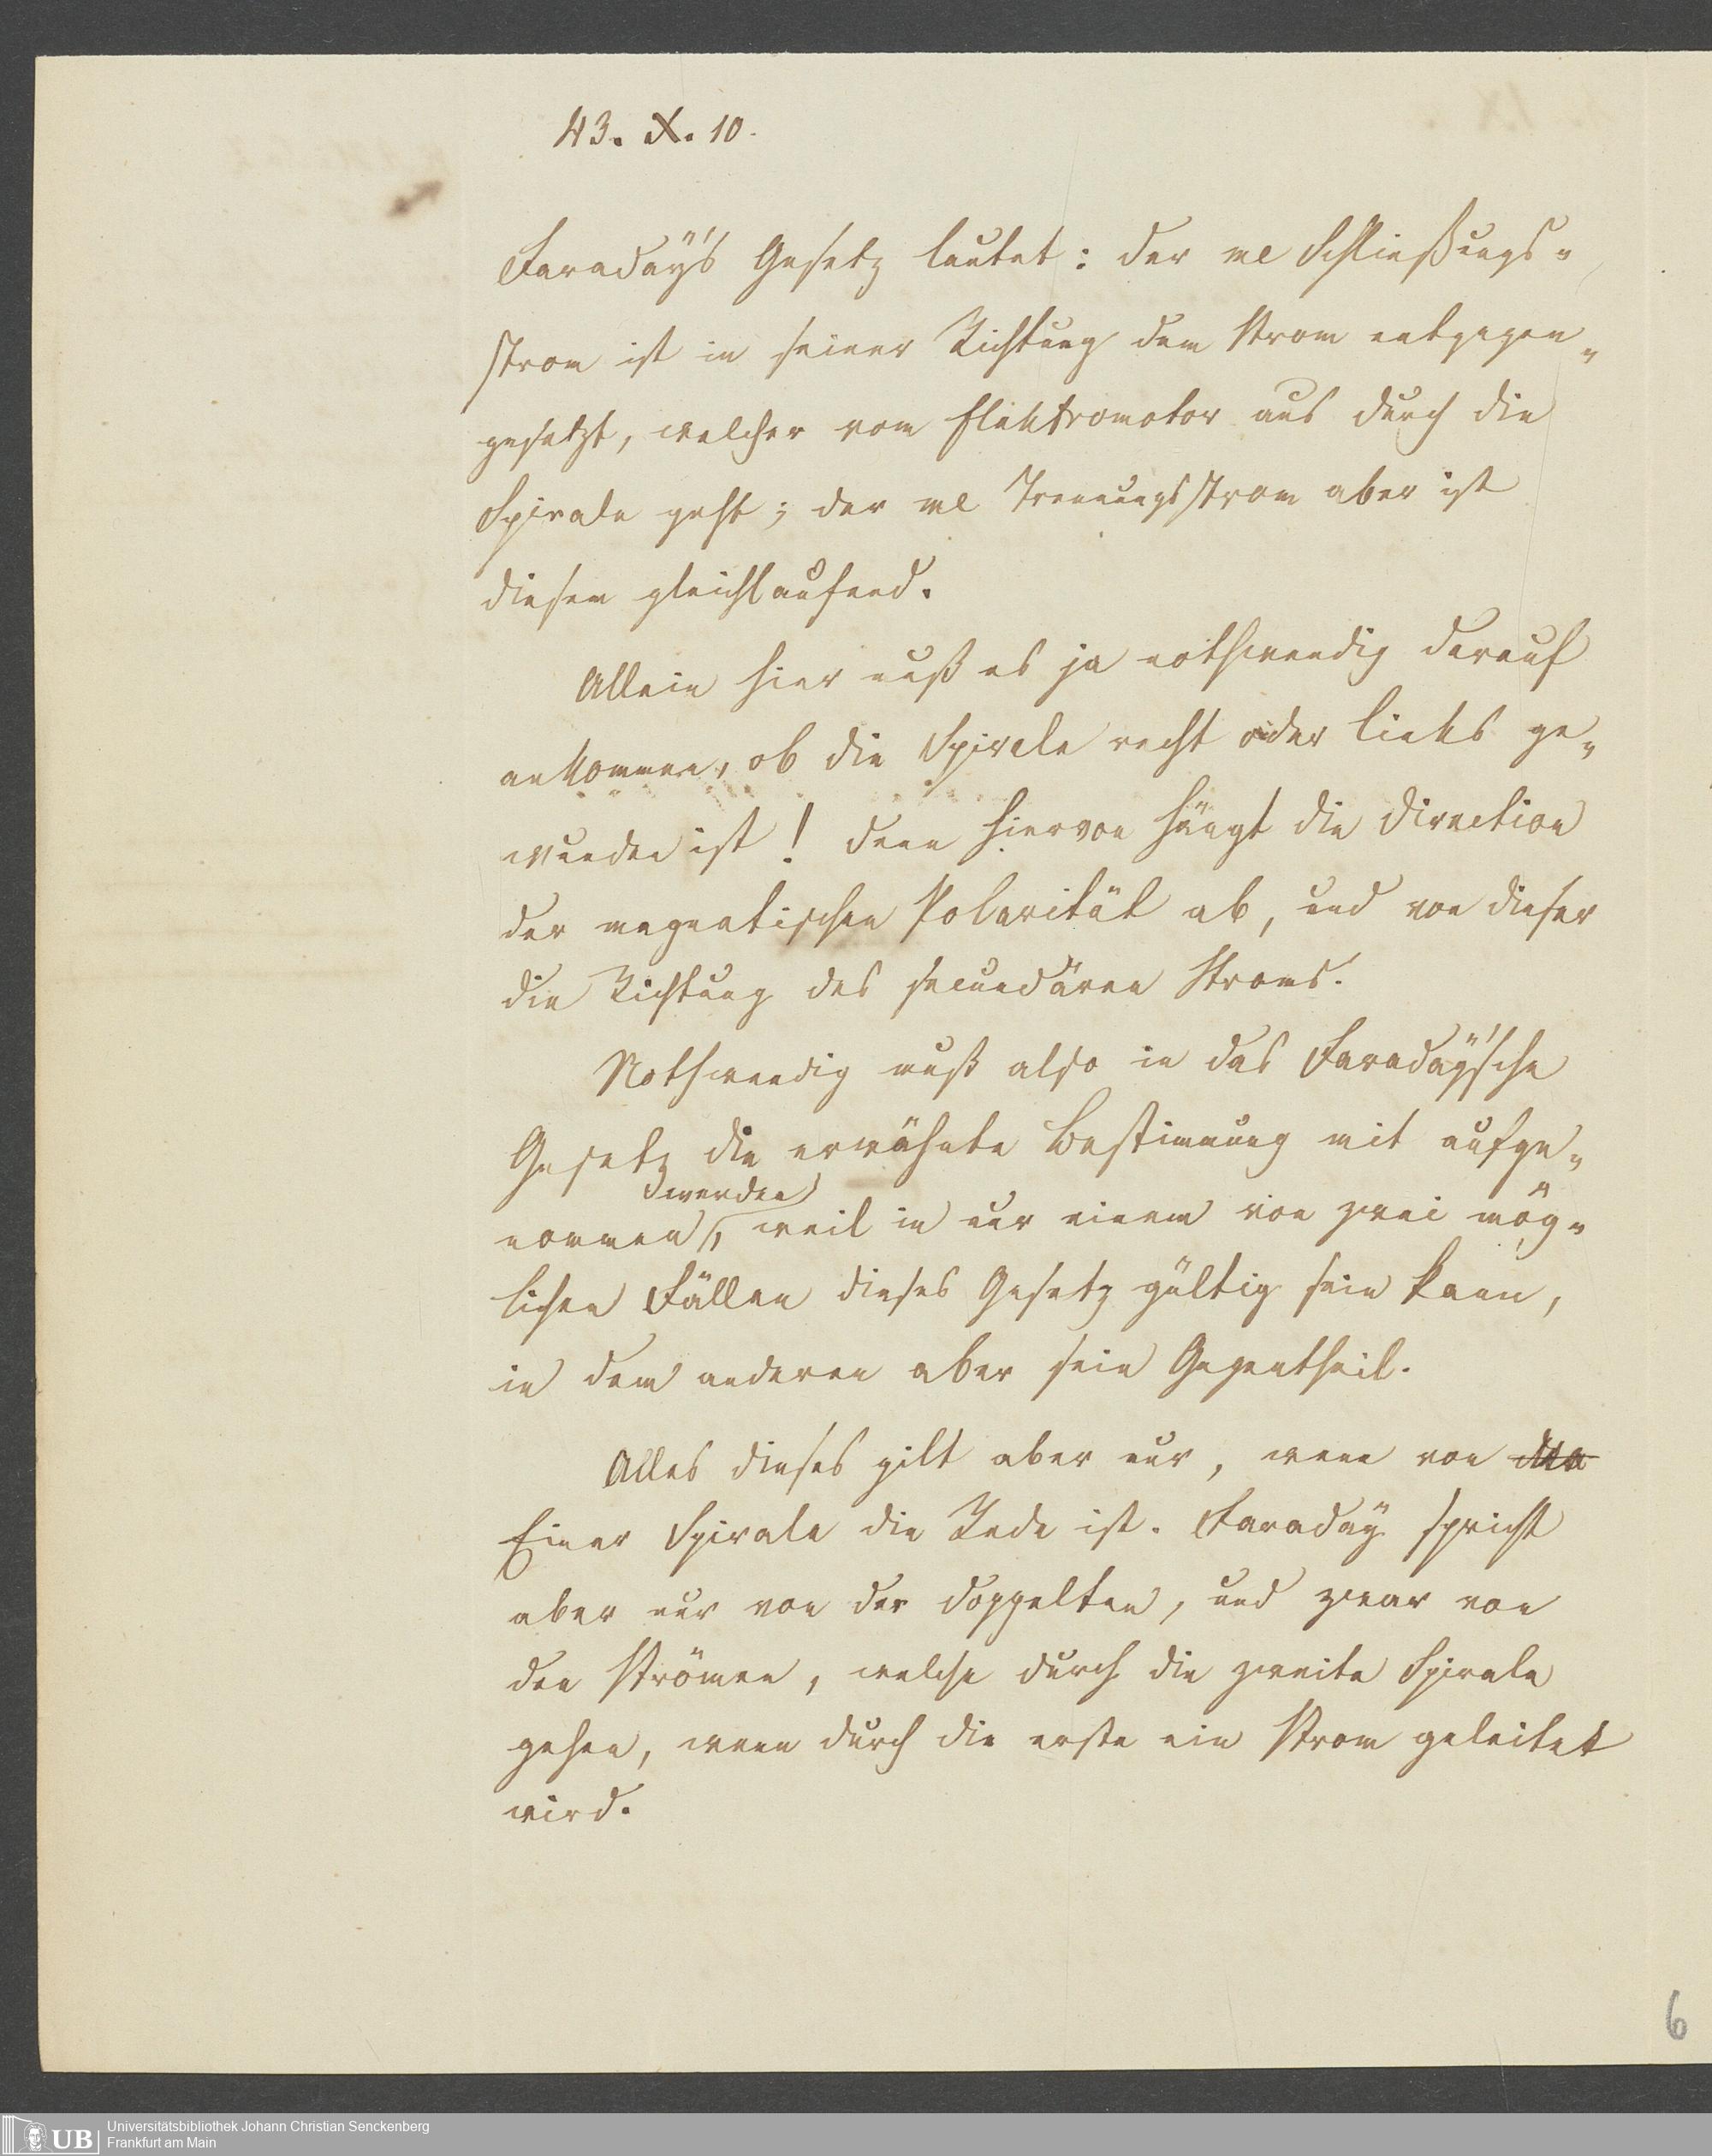 43. X. 10.
Faradaÿ's Gesetz lautet: der me Schließungs-
strom ist in seiner Richtung dem Strom entgegen-
gesetzt, welcher vom Elektromotor aus durch die
Spirale geht; der me Trennungsstrom aber ist
diesem gleichlaufend.
Allein hier muß es ja nothwendig darauf
ankommen, ob die Spirale recht oder links ge-
wunden ist! denn hiervon hängt die Direction
der magnetischen Polarität ab, und von dieser
die Richtung des secundären Stroms.
Nothwendig muß also in das Faradaÿ'sche
Gesetz die erwähnte Bestimmung mit aufge-
werden
nommen, weil in nur einem von zwei mög-
lichen Fällen dieses Gesetz gültig sein kann,
in dem anderen aber sein Gegentheil.
Alles dieses gilt aber nur, wenn von
Einer Spirale die Rede ist. Faradaÿ spricht
aber nur von der doppelten, und zwar von
den Strömen, welche durch die zweite Spirale
gehen, wenn durch die erste ein Strom geleitet
wird.
6
UB Universitätsbibliothek Johann Christian Senckenberg
Frankfurt am Main